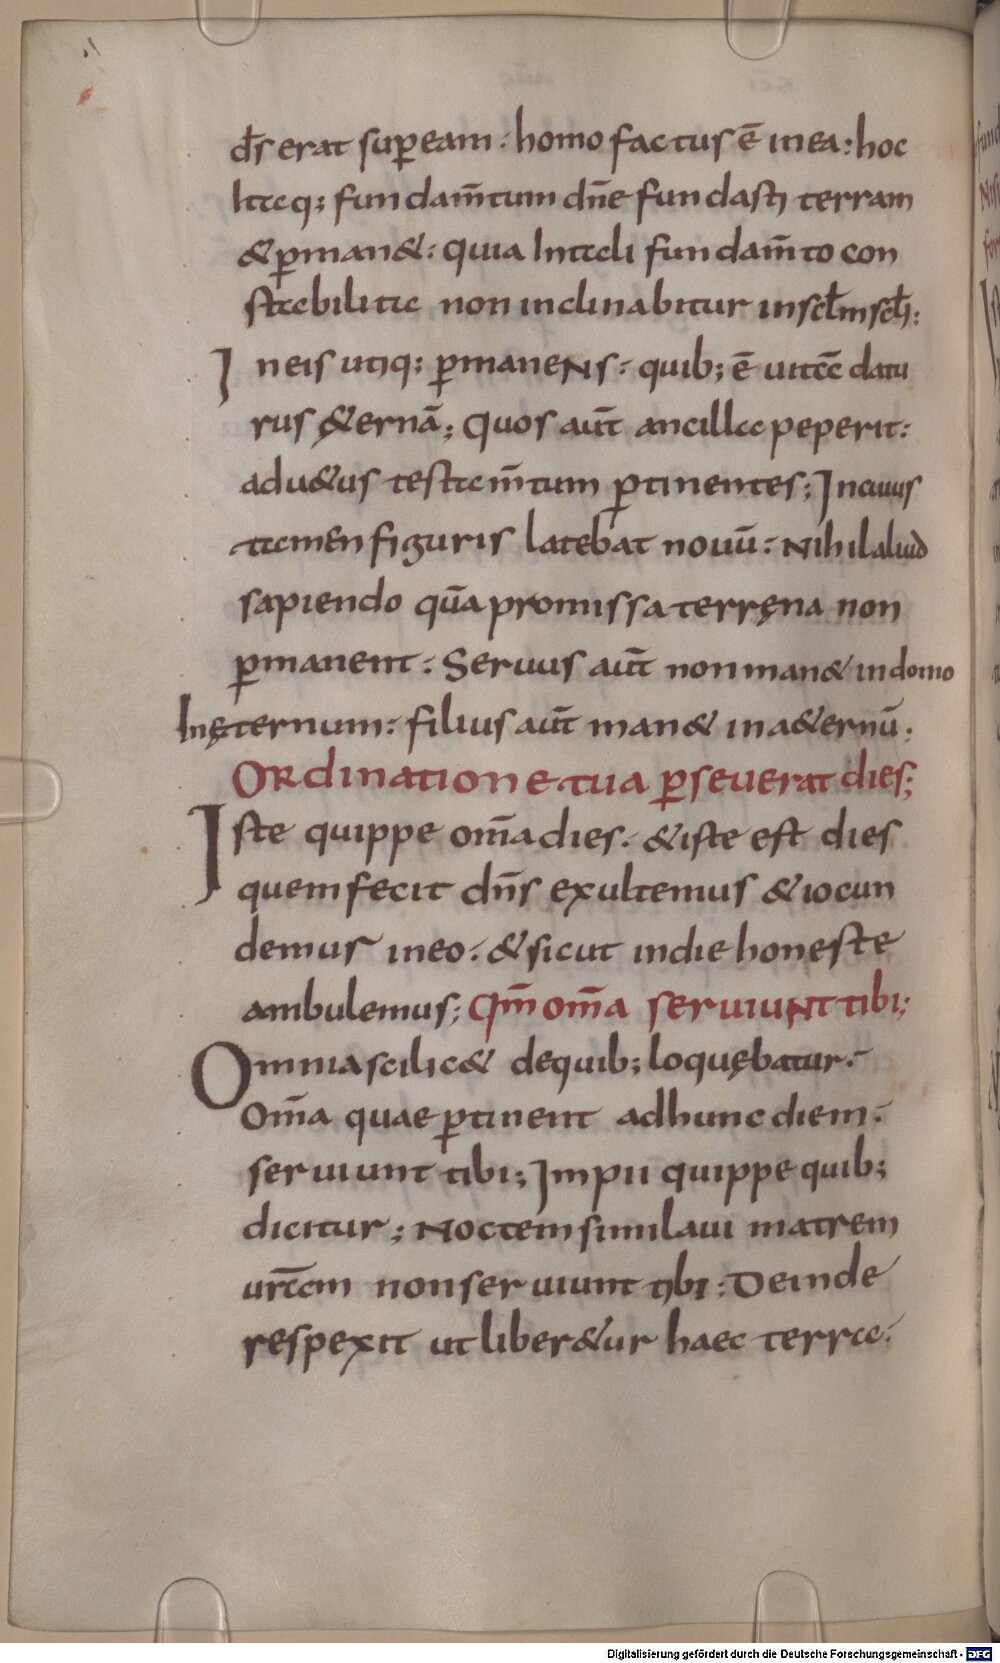 d̄s erat sup̄ eam · homo factus ē in ea : hoc
Itaq; fundam̄tum dn̄e fundasti terram
& p̄man& : quia In tali fundam̄to con
stabilita non inclinabitur in scl̄m scl̄i ;
In eis utiq; p̄manens : quib; ē uitā datu
rus &ernā ; Quos aūt ancilla peperit :
ad u&us testam̄tum p̄tinentes ; In cuius
tamen figuris latebat nouū : Nihil aliud
sapiendo quā promissa terręna non
p̄manent : Seruus aūt non man& in domo
In ęternum : filius aūt man& in a&ernū ;
Ordinatione tua p̄seuerat dies ;
Iste quippe om̄a dies · & iste est dies
quem fecit dn̄s exultemus & iocun
demus in eo · & sicut in die honeste
ambulemus ; Qm̄ om̄a seruiunt tibi ;
Omnia scilic& de quib; loquębatur ·
Om̄a quae p̄tinent ad hunc diem ·
seruiunt tibi ; Impii quippe quib;
dicitur ; Noctem similaui matrem
ur̄am non seruiunt tibi : Deinde
respexit ut liber&ur haec terra ·
Digitalisierung gefördert durch die Deutsche Forschungsgemeinschaft - DFG